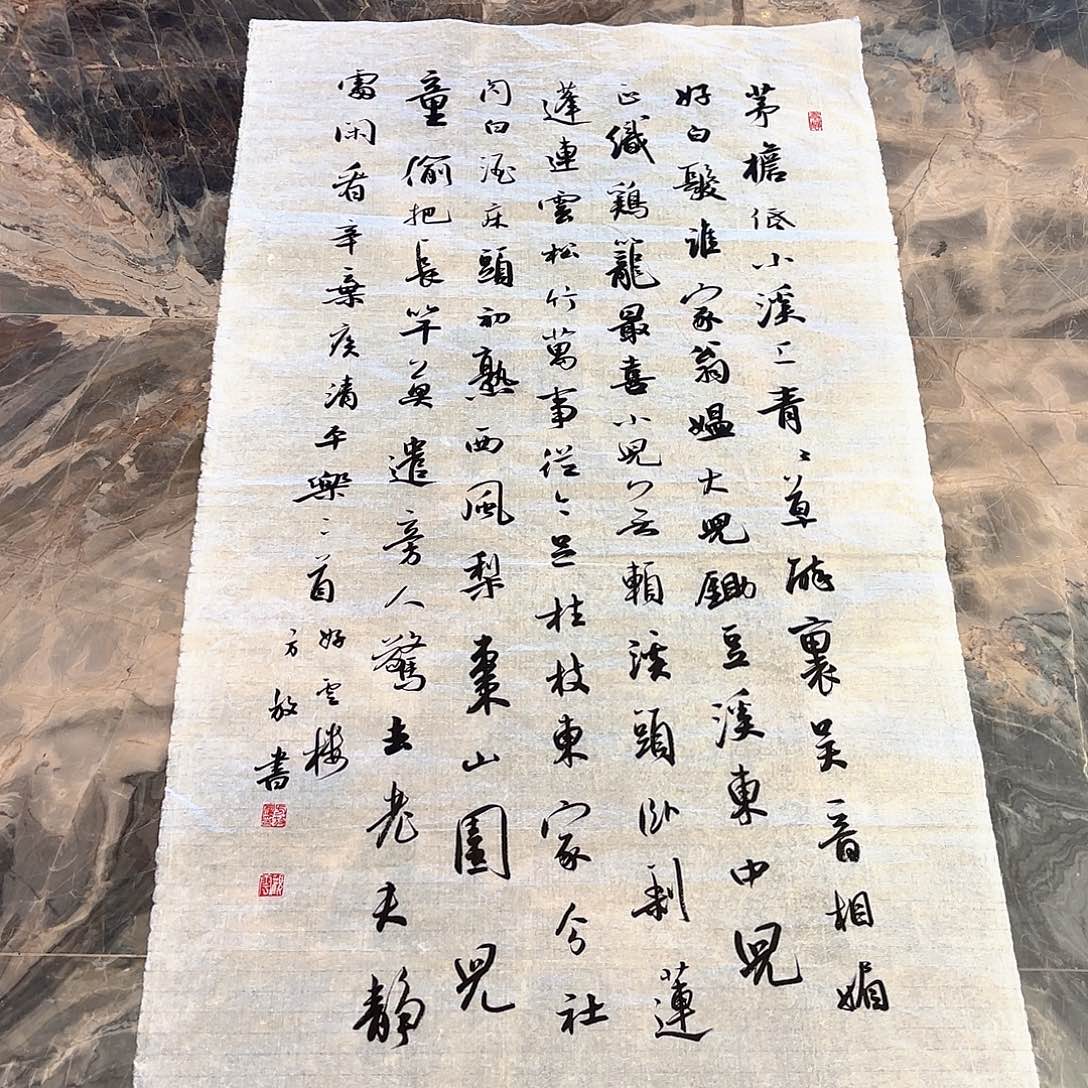 茅檐低小溪上青〻草醉裏吴音相媚
好白髮誰家翁媪大兒鋤豆溪東中兒
正織鷄籠最喜小兒無賴溪頭卧剥蓮
蓬連雲松竹萬事從今足拄杖東家分社
肉白酒床頭初熟西風梨棗山園兒
童偷把長竿莫遣旁人驚去老夫静
處閑看辛棄疾清平樂二首好雲樓
方放書